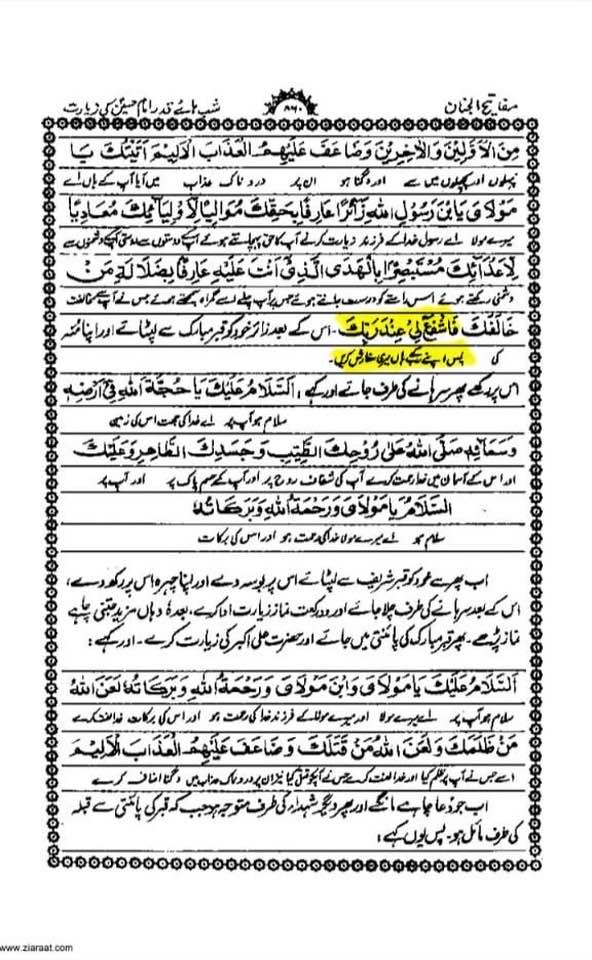 مفاتیح الجنان
۸۶۰
شب ہائے قدر امام حسینؑ کی زیارت
مِنَ الْاَوَّلِيْنَ وَالْاٰخِرِيْنَ وَضَاعَفَ عَلَيْهِمُ الْعَذَابَ الْاَلِيْمَ اَتَيْتُكَ يَا
پہلوں اور پچھلوں میں سے اور دگنا ہو ان پر دردناک عذاب میں آیا آپ کے ہاں اے
مَوْلَايَ يَابْنَ رَسُوْلِ اللهِ زَائِرًا عَارِفًا بِحَقِّكَ مُوَالِيًا لِاَوْلِيَائِكَ مُعَادِيًا
میرے مولا اے رسول خدا کے فرزند زیارت کرنے آپ کا حق پہچانتے ہوئے آپ کے دوستوں سے دوستی آپ کے دشمنوں سے
لِاَعْدَائِكَ مُسْتَبْصِرًا بِالْهُدَى الَّذِيْ اَنْتَ عَلَيْهِ عَارِفًا بِضَلَالَةِ مَنْ
دشمنی رکھتے ہوئے اس راستے کو درست جانتے ہوئے جس پر آپ چلے اسے گمراہ سمجھتے ہوئے جس نے آپ سے مخالفت
خَالَفَكَ فَاشْفَعْ لِيْ عِنْدَ رَبِّكَ۔ اس کے بعد زائر خود کو قبر مبارک سے لپٹائے اور اپنا منہ
کی پس اپنے رب کے ہاں میری سفارش کریں۔
اس پر رکھے پھر سرہانے کی طرف جائے اور کہے: اَلسَّلَامُ عَلَيْكَ يَا حُجَّةَ اللهِ فِيْ اَرْضِهِ
سلام ہو آپ پر اے خدا کی حجت اس کی زمین
وَسَمَائِهِ صَلَّى اللهُ عَلٰى رُوْحِكَ الطَّيِّبِ وَجَسَدِكَ الطَّاهِرِ وَعَلَيْكَ
اور اس کے آسمان میں خدا رحمت کرے آپ کی شفاف روح پر اور آپ کے جسم پاک پر اور آپ پر
السَّلَامُ يَا مَوْلَايَ وَرَحْمَةُ اللهِ وَبَرَكَاتُهُ
سلام ہو اے میرے مولا خدا کی رحمت ہو اور اس کی برکات
اب پھر سے خود کو قبر شریف سے لپٹائے اس پر بوسہ دے اور اپنا چہرہ اس پر رکھ دے،
اس کے بعد سرہانے کی طرف چلا جائے اور دو رکعت نماز زیارت ادا کرے، بعدہٗ وہاں مزید جتنی چاہے
نماز پڑھے۔ پھر قبر مبارک کی پائنتی میں جائے اور حضرت علی اکبر کی زیارت کرے۔ اور کہے:
اَلسَّلَامُ عَلَيْكَ يَا مَوْلَايَ وَابْنَ مَوْلَايَ وَرَحْمَةُ اللهِ وَبَرَكَاتُهُ لَعَنَ اللهُ
سلام ہو آپ پر اے میرے مولا اور میرے مولا کے فرزند خدا کی رحمت ہو اور اس کی برکات خدا لعنت کرے
مَنْ ظَلَمَكَ وَلَعَنَ اللهُ مَنْ قَتَلَكَ وَضَاعَفَ عَلَيْهِمُ الْعَذَابَ الْاَلِيْمَ
اسے جس نے آپ پر ظلم کیا اور خدا لعنت کرے جس نے آپکو قتل کیا نیز ان پر دردناک عذاب میں دگنا اضافہ کرے
اب جو دعا چاہے مانگے اور پھر دیگر شہداء کی طرف متوجہ ہو جب کہ قبر کی پائنتی سے قبلہ
کی طرف مائل ہو۔ پس یوں کہے:
www.ziaraat.com